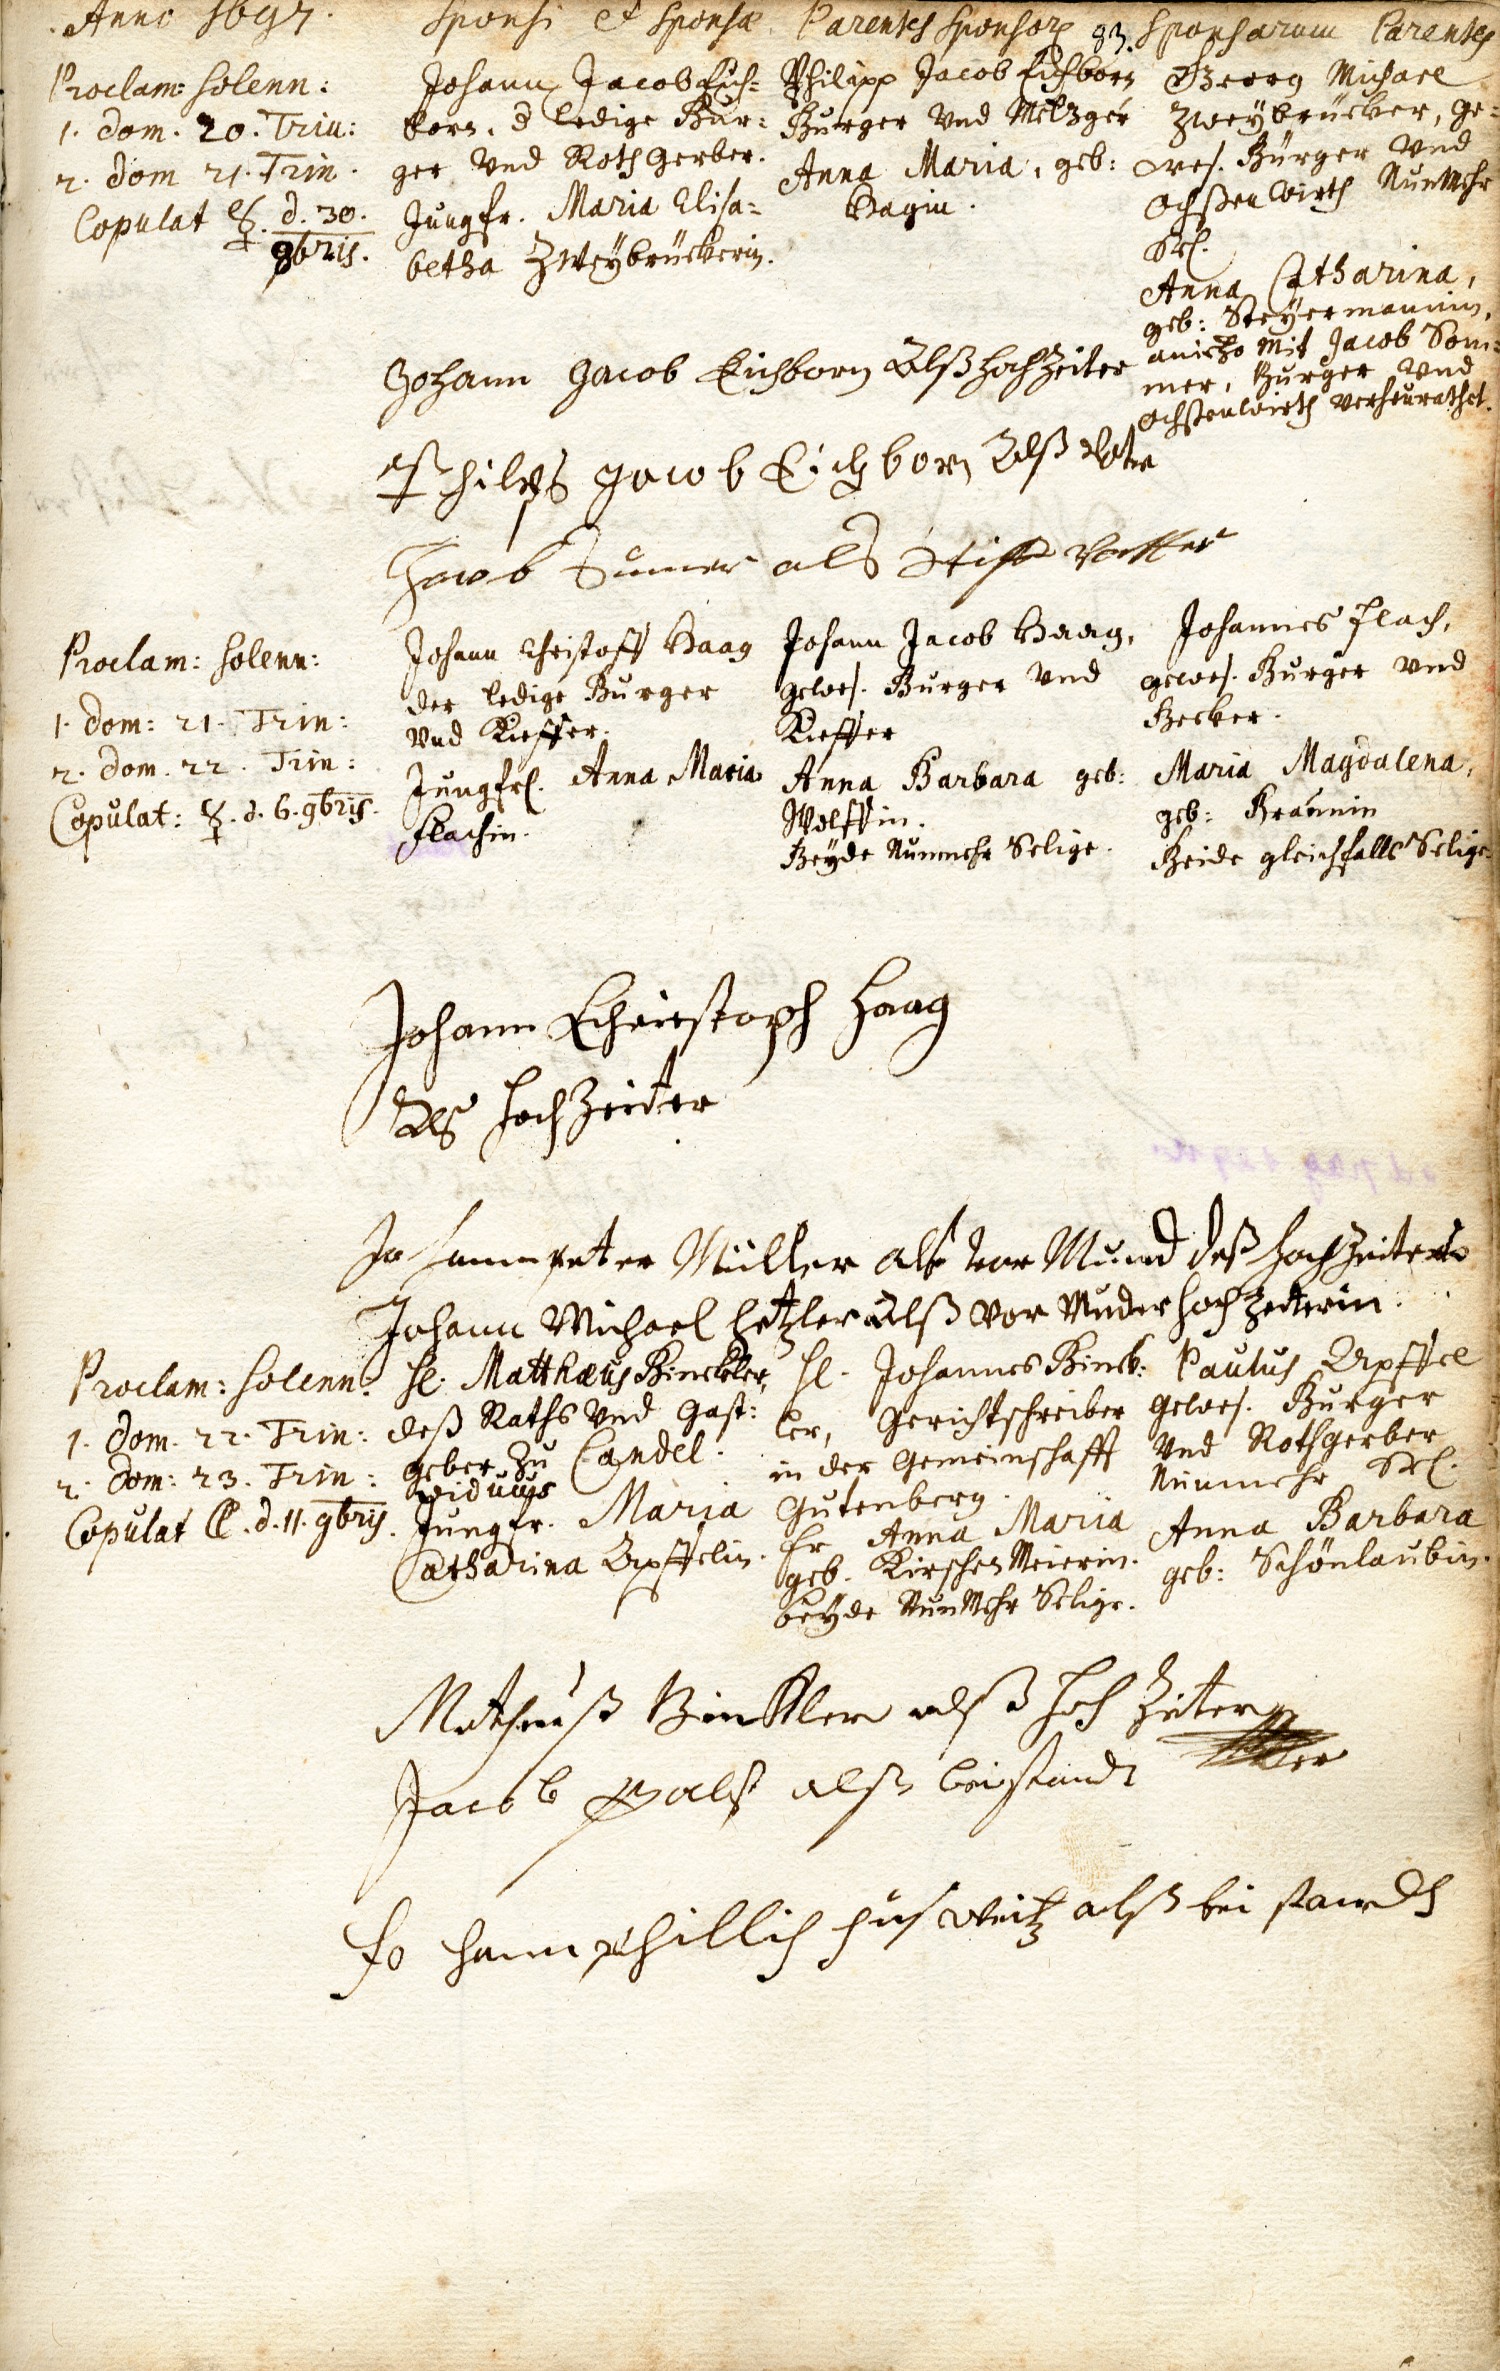 Anno 1697.
Sponsi et Sponsæ
Parentes Sponsor
83.
Sponsarum Parentes
Proclam: Solenn:
1. Dom. 20. Trin:
2. Dom 21. Trin.
Copulat ☿. d. 30.
8bris.
Johann Jacob Eich-
born, d ledige Bur-
ger und Rothgerber.
Jungfr. Maria Elisa-
betha Zweybrückerin.
Philipp Jacob Eichborn
Burger und Metzger
Anna Maria, geb:
Hagin.
Georg Michael
Zweybrücker, ge-
wes. Burger und
Ochßenwirth NunMehr
Sel.
Anna Catharina,
geb: Steyermannin,
aniezo mit Jacob Som-
mer, Burger und
Ochßenwirth verheurathet.
Johann Jacob Eichborn Alß Hochzeiter
Philips Jacob Eichborn Alß Vater
Jacob Sumer als Stiff Vatter
Proclam: Solenn:
1. Dom: 21. Trin:
2. Dom. 22. Trin:
Copulat: ☿. d. 6. 9bris.
Johann Christoff Haag
der ledige Burger
und Kieffer.
Jungfrl. Anna Maria
Flachin.
Johann Jacob Haag,
gewes. Burger und
Kieffer
Anna Barbara geb:
Wolffin.
Beyde Nunmehr Selige.
Johannes Flach,
gewes. Burger und
Becker.
Maria Magdalena,
geb: Braunin
Beide gleichfalls Selige.
Johann Christoph Haag
Als Hochzeiter
Johannpeter Müller alß vor Mund deß Hochzeiters
Johann Michael Hetzler Alß vor Munder Hochzeiterin.
Proclam: Solenn:
1. Dom. 22. Trin:
2. Dom: 23. Trin:
Copulat ☾. d. 11. 9bris.
H. Matthæus Binckler,
deß Raths und Gast-
geber zu Candel.
viduus
Jungfr. Maria
Catharina Apffelin.
H. Johannes Binck-
ler, Gerichtschreiber
in der Gemeinschafft
Gutenberg.
Fr Anna Maria
geb. Kirschen Meierin.
beyde NunMehr Selige.
Paulus Apffel
gewes. Burger
und Rothgerber
Nunmehr Sel.
Anna Barbara
geb: Schönlaubin.
Matheuß Binkler alß Hoch Zeiter
Jacob alß beistandt
Johann phillich alß bei stand